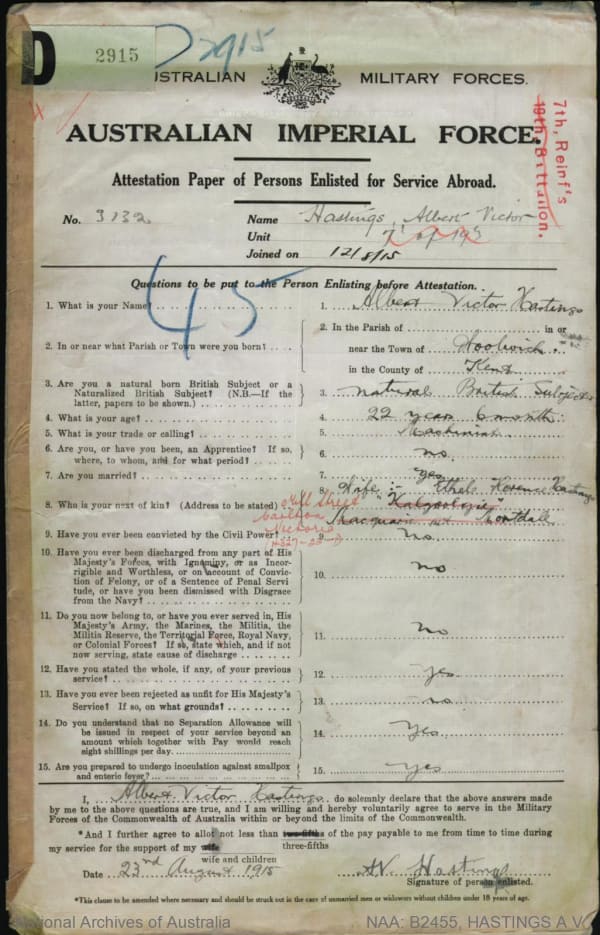 D 2915
2915
AUSTRALIAN MILITARY FORCES.
AUSTRALIAN IMPERIAL FORCE.
7th, Reinf's
19th, Battalion.
Attestation Paper of Persons Enlisted for Service Abroad.
No. 3132 Name Hastings, Albert Victor
Unit 7 of 19
Joined on 12/8/15
45
Questions to be put to the Person Enlisting before Attestation.
1. What is your Name? 1. Albert Victor Hastings
2. In or near what Parish or Town were you born? 2. In the Parish of in or
near the Town of Woolwich
in the County of Kent
3. Are you a natural born British Subject or a
Naturalized British Subject? (N.B.—If the
latter, papers to be shown.) 3. natural British Subject
4. What is your age? 4. 22 years 6 months
5. What is your trade or calling? 5. Machinist
6. Are you, or have you been, an Apprentice? If so,
where, to whom, and for what period? 6. no
7. Are you married? 7. Yes
8. Who is your next of kin? (Address to be stated) 8. Wife :- Ethel Florence Hastings
Street "Kalgoolgie"
Carlton Macquarie Mortdale
Victoria
9. Have you ever been convicted by the Civil Power? 9. No
10. Have you ever been discharged from any part of His
Majesty's Forces, with Ignominy, or as Incor-
rigible and Worthless, or on account of Convic-
tion of Felony, or of a Sentence of Penal Servi-
tude, or have you been dismissed with Disgrace
from the Navy? 10. no
11. Do you now belong to, or have you ever served in, His
Majesty's Army, the Marines, the Militia, the
Militia Reserve, the Territorial Force, Royal Navy,
or Colonial Forces? If so, state which, and if not
now serving, state cause of discharge 11. No
12. Have you stated the whole, if any, of your previous
service? 12. yes
13. Have you ever been rejected as unfit for His Majesty's
Service? If so, on what grounds? 13. no
14. Do you understand that no Separation Allowance will
be issued in respect of your service beyond an
amount which together with Pay would reach
eight shillings per day. 14. Yes
15. Are you prepared to undergo inoculation against smallpox
and enteric fever? 15. yes
I, Albert Victor Hastings do solemnly declare that the above answers made
by me to the above questions are true, and I am willing and hereby voluntarily agree to serve in the Military
Forces of the Commonwealth of Australia within or beyond the limits of the Commonwealth.
*And I further agree to allot not less than two-fifths of the pay payable to me from time to time during
three-fifths
my service for the support of my wife
wife and children
Date 23rd August 1915 AV Hastings
Signature of person enlisted.
*This clause to be amended where necessary and should be struck out in the case of unmarried men or widowers without children under 18 years of age.
National Archives of Australia NAA: B2455, HASTINGS A V